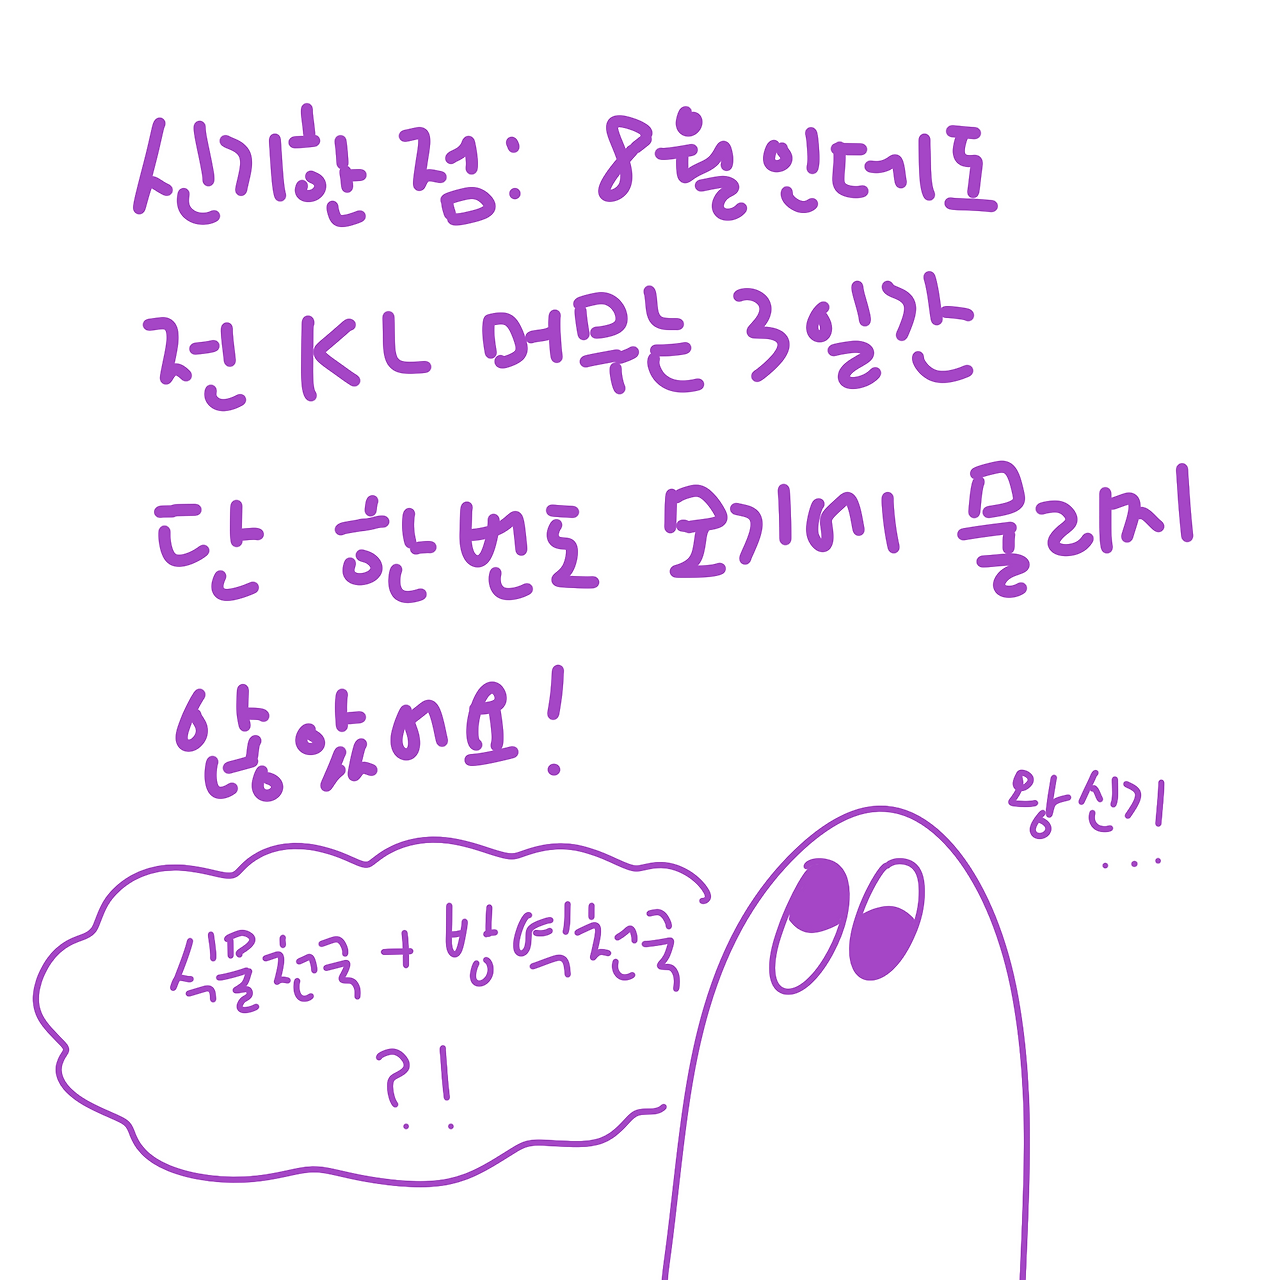 신기한 점: 8월인데도
전 KL 머무는 3일간
단 한번도 모기에 물리지
않았어요!
왕신기
...
식물천국 + 방역천국
?!